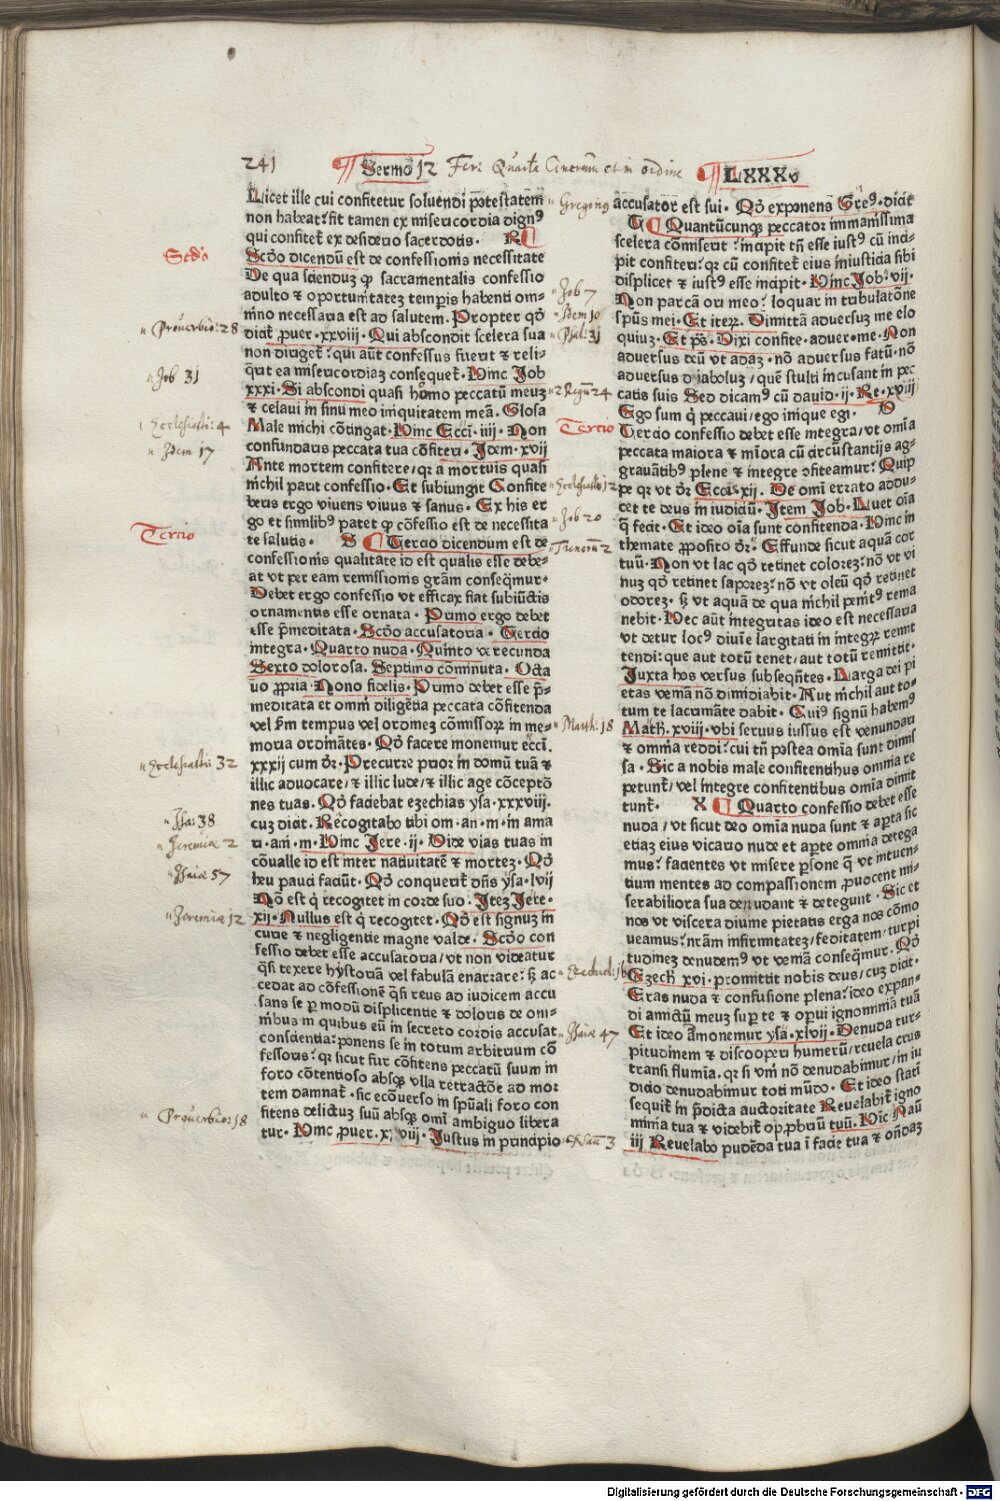 241
¶ Sermo 12 Fer: Quarta Cinerum et in ordine
¶ LXXXV
Licet ille cui confitetur soluendi ptãtestatem
non habeat: fit tamen ex misericordia dignꝰ
qui confitet̃ ex desiderio sacerdotis. R
Scdo dicendũ est de confessionis necessitate
De qua sciendũ ꝙ sacramentalis confessio
adulto & oportunitatez temp̃is habenti om-
nino necessaria est ad salutem. Propter qđ
dicit̃ ꝓuer. xxviii. Qui abscondit scelera sua
non diriget̃: qui aũt confessus fuerit & reli-
q̃rit ea misericordiaz conseq̃uet̃. Hinc Job
xxxi. Si abscondi quasi homo peccatũ meuz
& celaui in sinu meo iniquitatem meã. Glosa
Male michi cõtingat. Hinc Ecci. iiii. Non
confundaris peccata tua cõfiteri. Idem. xvii
Ante mortem confitere/ qr a mortuis quasi
nichil perit confessio. Et subiungit Confite
beris ergo viuens viuus & sanus. Ex his er
go et similibꝰ patet ꝙ cõfessio est de necessita
te salutis. S Tercio dicendum est de
confessionis qualitate id est qualis esse debe-
at vt per eam remissionis grãm conseq̃mur.
Debet ergo confessio vt efficax fiat subiũctis
ornamentis esse ornata. Primo ergo debet
esse p̃meditata. Scdo accusatoria. Tercio
integra. Quarto nuda. Quinto verecunda
Sexto dolorosa. Septimo cõminuta. Octa
uo ꝓpria. Nono fidelis. Primo debet esse p̃-
meditata et omni diligẽtia peccata cõfitenda
vel s̃m tempus vel ordinez cõmissorꝝ in me-
moria ordinãtes. Qđ facere monemur ecci.
xxxij cum dr̃. Precurre prior in domũ tuã &
illic aduocare/ & illic lude/ & illic age cõceptõ
nes tuas. Qđ faciebat ezechias ysa. xxxviii.
cuz dicit. Recogitabo tibi om. an. m. in ama
ri. am. m. Hinc Jere. ij. Vide vias tuas in
cõualle id est inter natiuitatẽ & mortez. Qđ
heu pauci faciũt. Qđ conquerit̃ dñs ysa. lvij
Nõ est q̃ recogitet in corde suo. Itez Jere.
xij. Nullus est q̃ recogitet. Qđ est signuz in
curie & negligentie magne valde. Scdo con
fessio debet esse accusatoria/ vt non videatur
q̃si texere hystoriã vel fabulã enarrare: sꝫ ac
cedat ad cõfessionẽ q̃si reus ad iudicem accu
sans se ꝑ modũ displicentie & doloris de om-
nibus in quibus eũ in secreto cordis accusat
consciẽtia: ponens se in totum arbitrium cõ
fessoris: qr sicut fur cõfitens peccatũ suum in
foro cõtentioso absqꝫ vlla retractõe ad mor
tem damnat̃. sic ecõuerso in sp̃uali foro con
fitens delictuz suũ absqꝫ omi ambiguo libera
tur. Hinc ꝓuer. x. viij. Justus in principio
accusator est sui. Qđ exponens Greꝰ. dicit
T Quantũcunqꝫ peccator immanissima
scelera cõmiserit: incipit tñ esse iustꝰ cũ inci-
pit confiteri: qr cũ confitet̃ eius iniusticia sibi
displicet & iustꝰ esse incipit. Hinc Job. vij.
Non parcã ori meo: loquar in tribulatõne
sp̃us mei. Et iteꝝ. Dimittã aduersuz me elo
quiuz. Et pš. Dixi confite. aduer. me. Non
aduersus deũ vt adaz. nõ aduersus fatũ. nõ
aduersus diaboluz/ quẽ stulti incusant in pec
catis suis Sed dicamꝰ cũ dauid. ij. Re. xviij
Ego sum q̃ peccaui/ ego inique egi. V
Tercio confessio debet esse integra/ vt omia
peccata maiora & miora cũ circũstantijs ag-
grauãtibꝰ plene & integre ꝓfiteamur: Quip
pe qr vt dr̃ Eccis. xij. De omi errato addu-
cet te deus in iudiciũ. Item Job. Luet oia
q̃ fecit. Et ideo oia sunt confitenda. Hinc in
themate ꝓposito dr̃. Effunde sicut aquã cor
tuũ. Non vt lac qđ retinet colorez: nõ vt vi
nuz qđ retinet saporez: nõ vt oleũ qđ retinet
odorez. sꝫ vt aquã de qua nichil penitꝰ rema
nebit. Hec aũt integritas ideo est necessaria
vt detur locꝰ diuie largitati in integrꝝ remit
tendi: que aut totũ tenet/ aut totũ remittit.
Juxta hos versus subseq̃ntes. Larga dei pi
etas veniã nõ dimidiabit. Aut nichil aut to-
tum te lacrimãte dabit. Cuiꝰ signũ habemꝰ
Math. xviij. vbi seruus iussus est venundari
& omnia reddi: cui tñ postea omia sunt dimis
sa. Sic a nobis male confitentibus omnia re
petunt̃/ vel integre confitentibus omia dimit
tunt̃. X Quarto confessio debet esse
nuda/ vt sicut deo omia nuda sunt & aꝑta sic
etiaz eius vicario nude et aꝑte omnia detega
mus: facientes vt misere ꝑsone q̃ vt intuen-
tium mentes ad compassionem ꝓuocent mi-
serabiliora sua denudant & detegunt. Sic et
nos vt viscera diuine pietatis erga nos cõmo
ueamus: nr̃am infirmitatez/ feditatem/ turpi
tudinez denudemꝰ vt veniã conseq̃mur. Qđ
Ezech̃ xvi. promittit nobis deus/ cuz dicit.
Eras nuda & confusione plena: ideo expan-
di amictũ meuz suꝑ te & oꝑui ignominiã tuã
Et ideo ãmonemur ysa. xlvij. Denuda tur-
pitudinem & discooperi humerũ/ reuela crus
transi flumia. qr si vñ nõ denudabimur/ in iu
dicio denudabimur toti mũdo. Et ideo stati
sequit̃ in p̃dicta auctoritate Reuelabit̃ igno
minia tua & videbit̃ opꝓbriũ tuũ. Hic Naũ
iij Reuelabo pudẽda tua ĩ facie tua & oñdaz
Scdo
Prouerbio: 28
Job 31
Ecclesiasti: 4
Idem 17
Tercio
Ecclesiastii 32
Isa: 38
Jeremiæ 2
Isaiæ 57
Jeremiæ 12
Prouerbio: 18
Gregorius
Job 7
Idem 10
Psal: 31
2 Regũ 24
Tercio
Ecclesiasti: 12
Job 20
Trenorũ 2
Math: 18
Ezechiel: 16
Isaiæ 47
Naũ 3
Digitalisierung gefördert durch die Deutsche Forschungsgemeinschaft - DFG